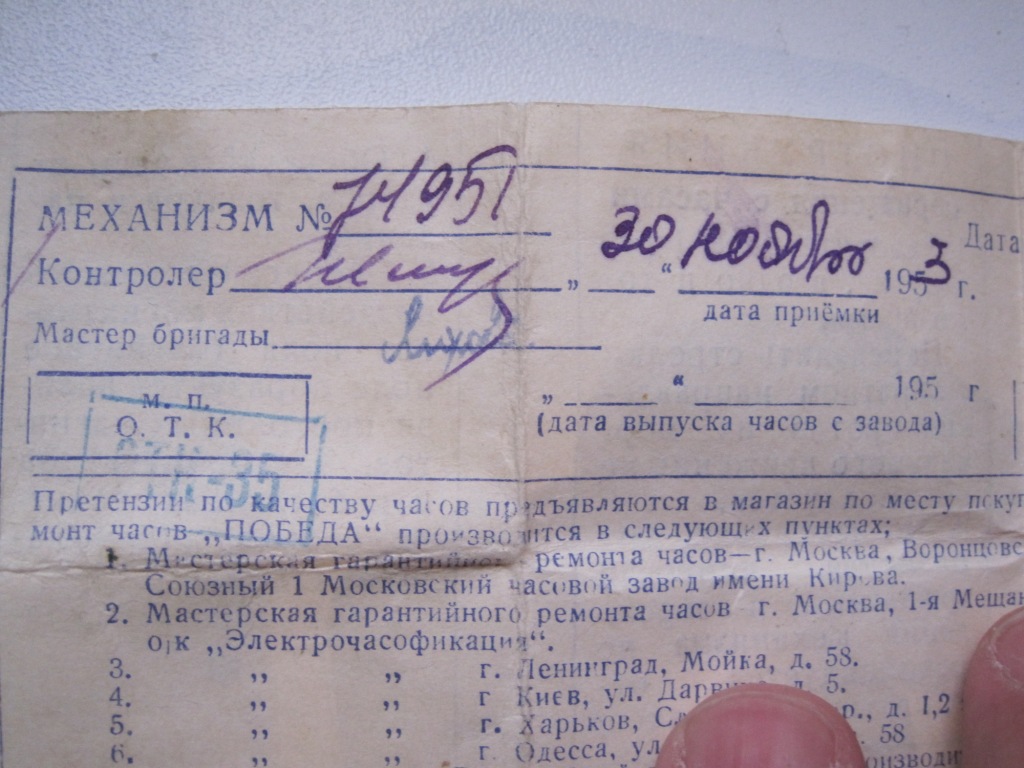 МЕХАНИЗМ № 74951
Дата
Контролер „ 30 “ ноября 1953 г.
дата приёмки
Мастер бригады
м. п.
О. Т. К.
„ “ 195 г
(дата выпуска часов с завода)
ОТК-35
Претензии по качеству часов предъявляются в магазин по месту
монт часов „ПОБЕДА“ производится в следующих пунктах;
1. Мастерская гарантийного ремонта часов—г. Москва,
Союзный 1 Московский часовой завод имени Кирова.
2. Мастерская гарантийного ремонта часов г. Москва, 1-я
о|к „Электрочасофикация“.
3. „ „ г. Ленинград, Мойка, д. 58.
4. „ „ г Киев, ул. д. 5.
5. „ „ г. Харьков, д. 1,2
6. „ „ г. Одесса, ул. 58